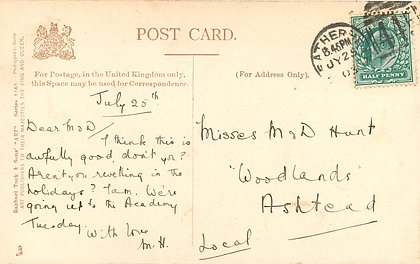 POST CARD.
For Postage, in the United Kingdom only,
this Space may be used for Correspondence.
(For Address Only).
HALF PENNY
July 25th
Dear M & D/
I think this is
awfully good, don't you?
Aren't you revelling in the
holidays? I am. We're
going up to the Academy
Tuesday.
With love
M.H.
Misses M & D Hunt
"Woodlands"
Ashtead
Local
Raphael Tuck & Sons' "ART"
ART PUBLISHERS TO THEIR MAJESTIES THE KING AND QUEEN.
8.45PM